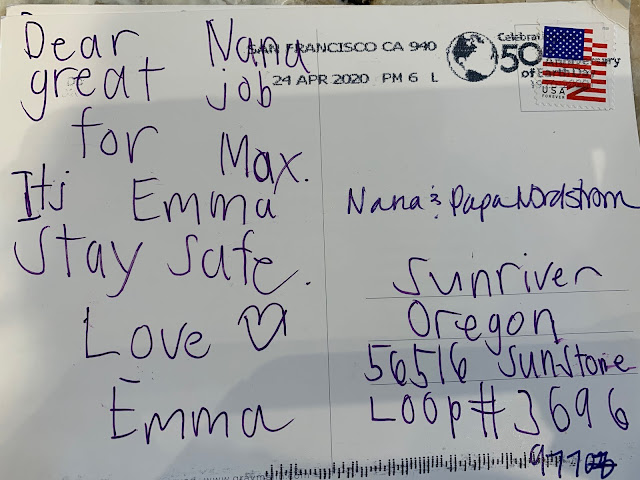 Dear Nana
great job
for Max.
Its Emma
Stay safe.
Love
Emma
SAN FRANCISCO CA 940
24 APR 2020 PM 6 L
Celebrat
50
Anniversary
of Earth Day
USA
FOREVER
Nana & Papa Nordstrom
Sunriver
Oregon
56516 Sunstone
Loop #3696